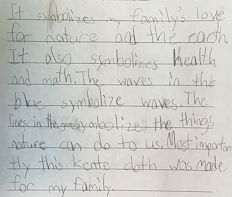 It symbolizes my family's love
for nature and the earth
It also symbolizes health
and math. The waves in the
blue symbolize waves. The
lines in the symbolize the things
nature can do to us. Most importan
tly this Kente cloth was made
for my family.